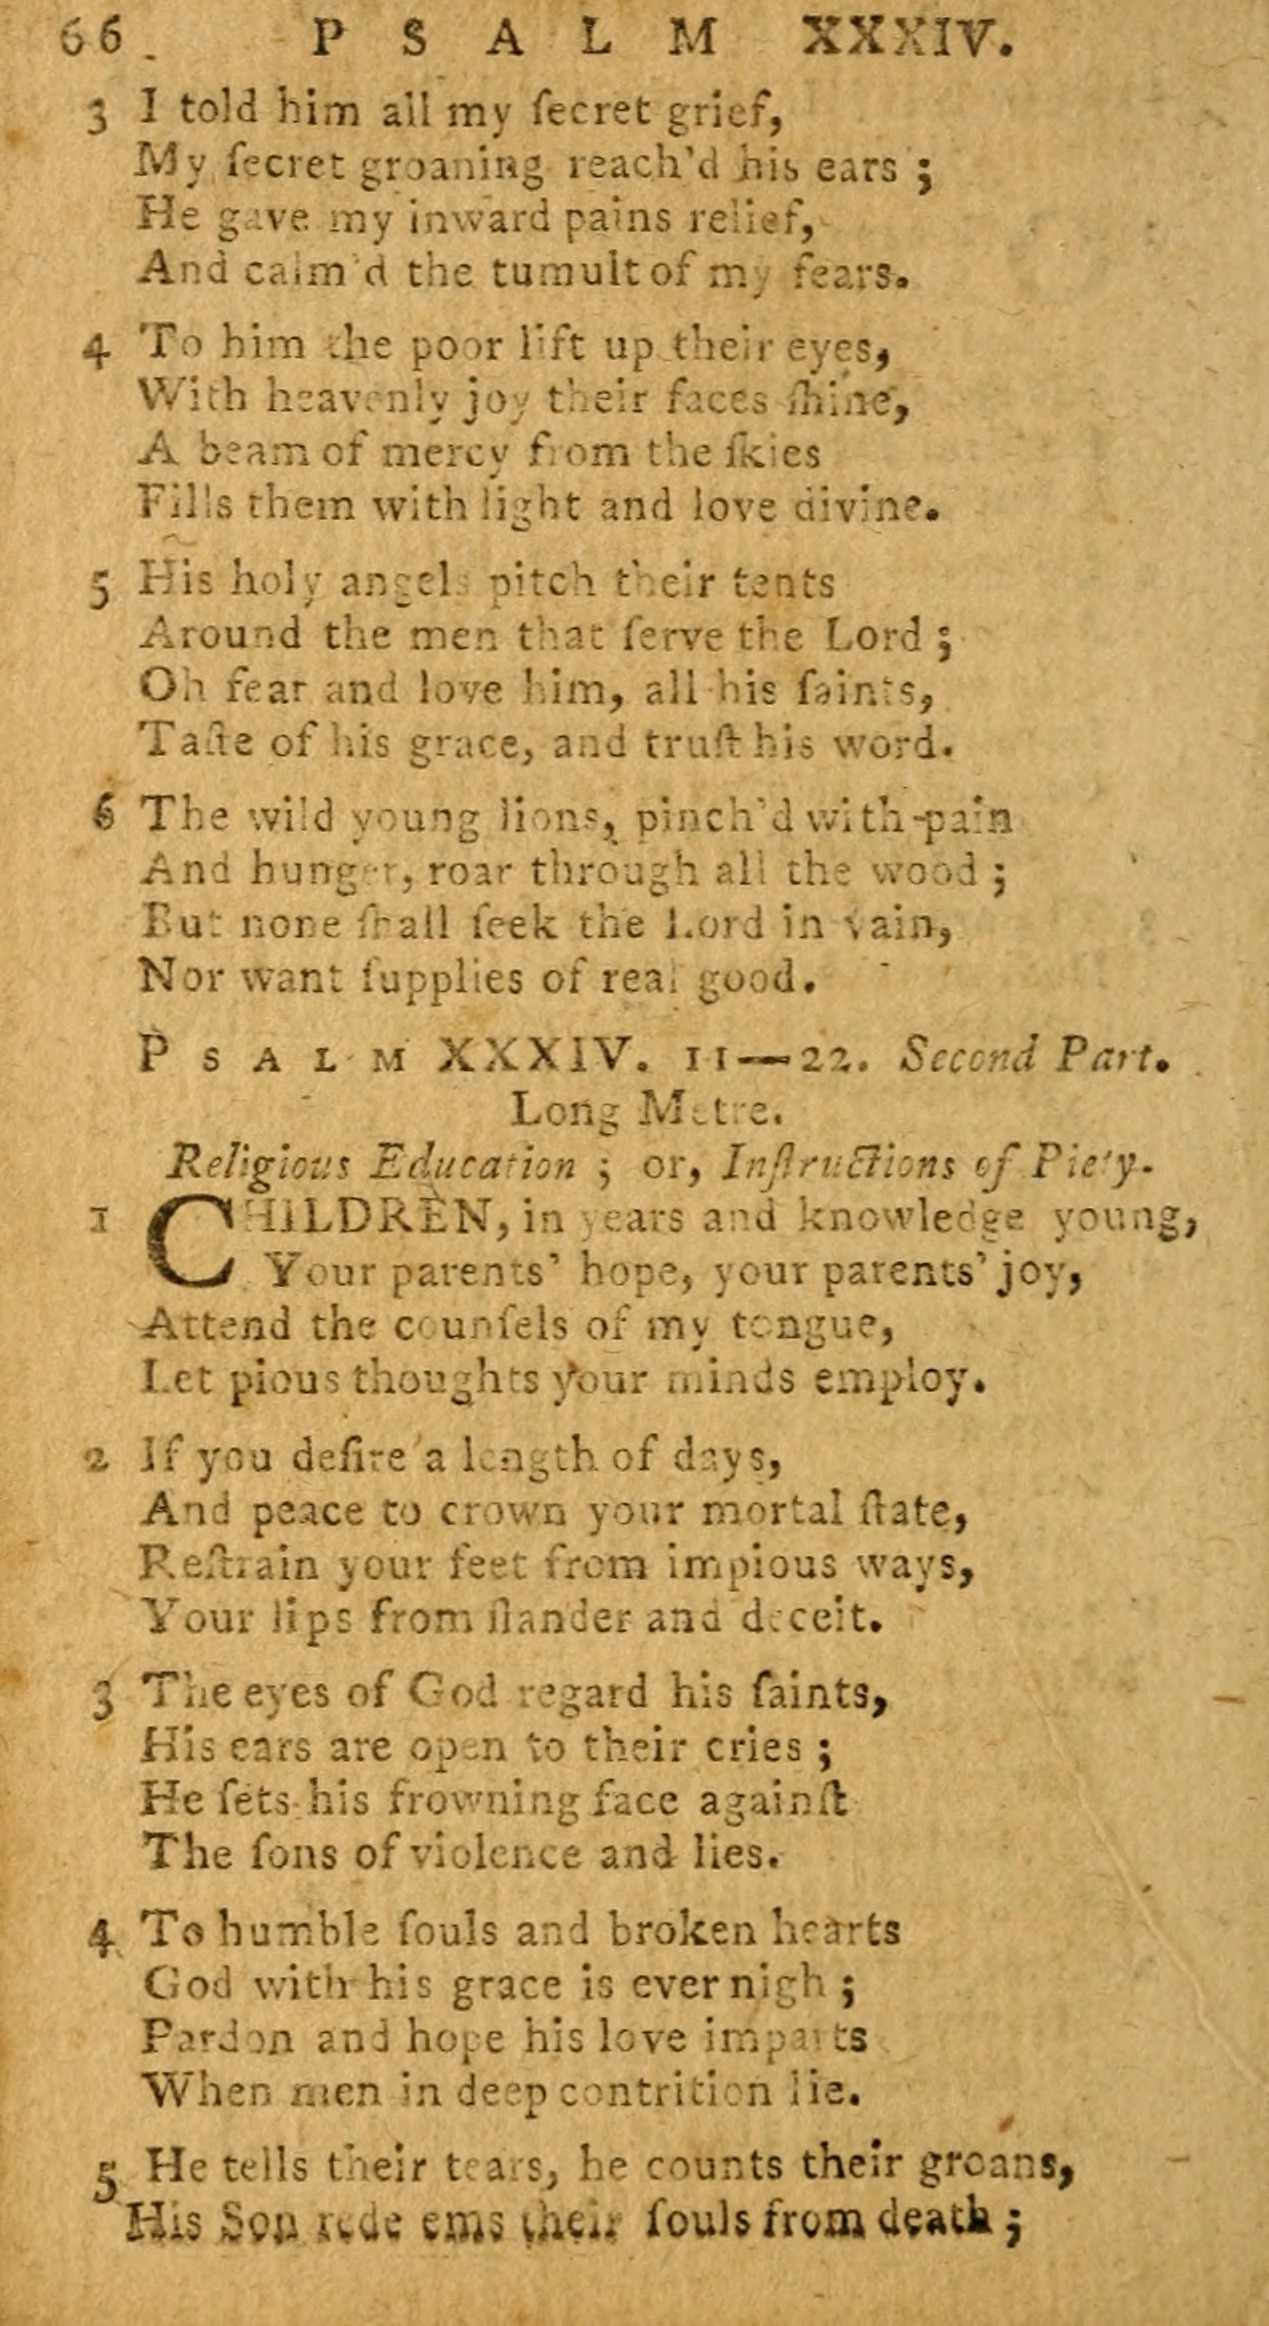 66 PSALM XXXIV.
3 I told him all my ſecret grief,
My ſecret groaning reach'd his ears ;
He gave my inward pains relief,
And calm'd the tumult of my fears.
4 To him the poor lift up their eyes,
With heavenly joy their faces ſhine,
A beam of mercy from the ſkies
Fills them with light and love divine.
5 His holy angels pitch their tents
Around the men that ſerve the Lord ;
Oh fear and love him, all his ſaints,
Taſte of his grace, and truſt his word.
6 The wild young lions, pinch'd with pain
And hunger, roar through all the wood ;
But none ſhall ſeek the Lord in vain,
Nor want ſupplies of real good.
PSALM XXXIV. 11—22. Second Part.
Long Metre.
Religious Education ; or, Inſtructions of Piety.
1 CHILDREN, in years and knowledge young,
Your parents' hope, your parents' joy,
Attend the counſels of my tongue,
Let pious thoughts your minds employ.
2 If you deſire a length of days,
And peace to crown your mortal ſtate,
Reſtrain your feet from impious ways,
Your lips from ſlander and deceit.
3 The eyes of God regard his ſaints,
His ears are open to their cries ;
He ſets his frowning face againſt
The ſons of violence and lies.
4 To humble ſouls and broken hearts
God with his grace is ever nigh ;
Pardon and hope his love imparts
When men in deep contrition lie.
5 He tells their tears, he counts their groans,
His Son rede ems their ſouls from death ;